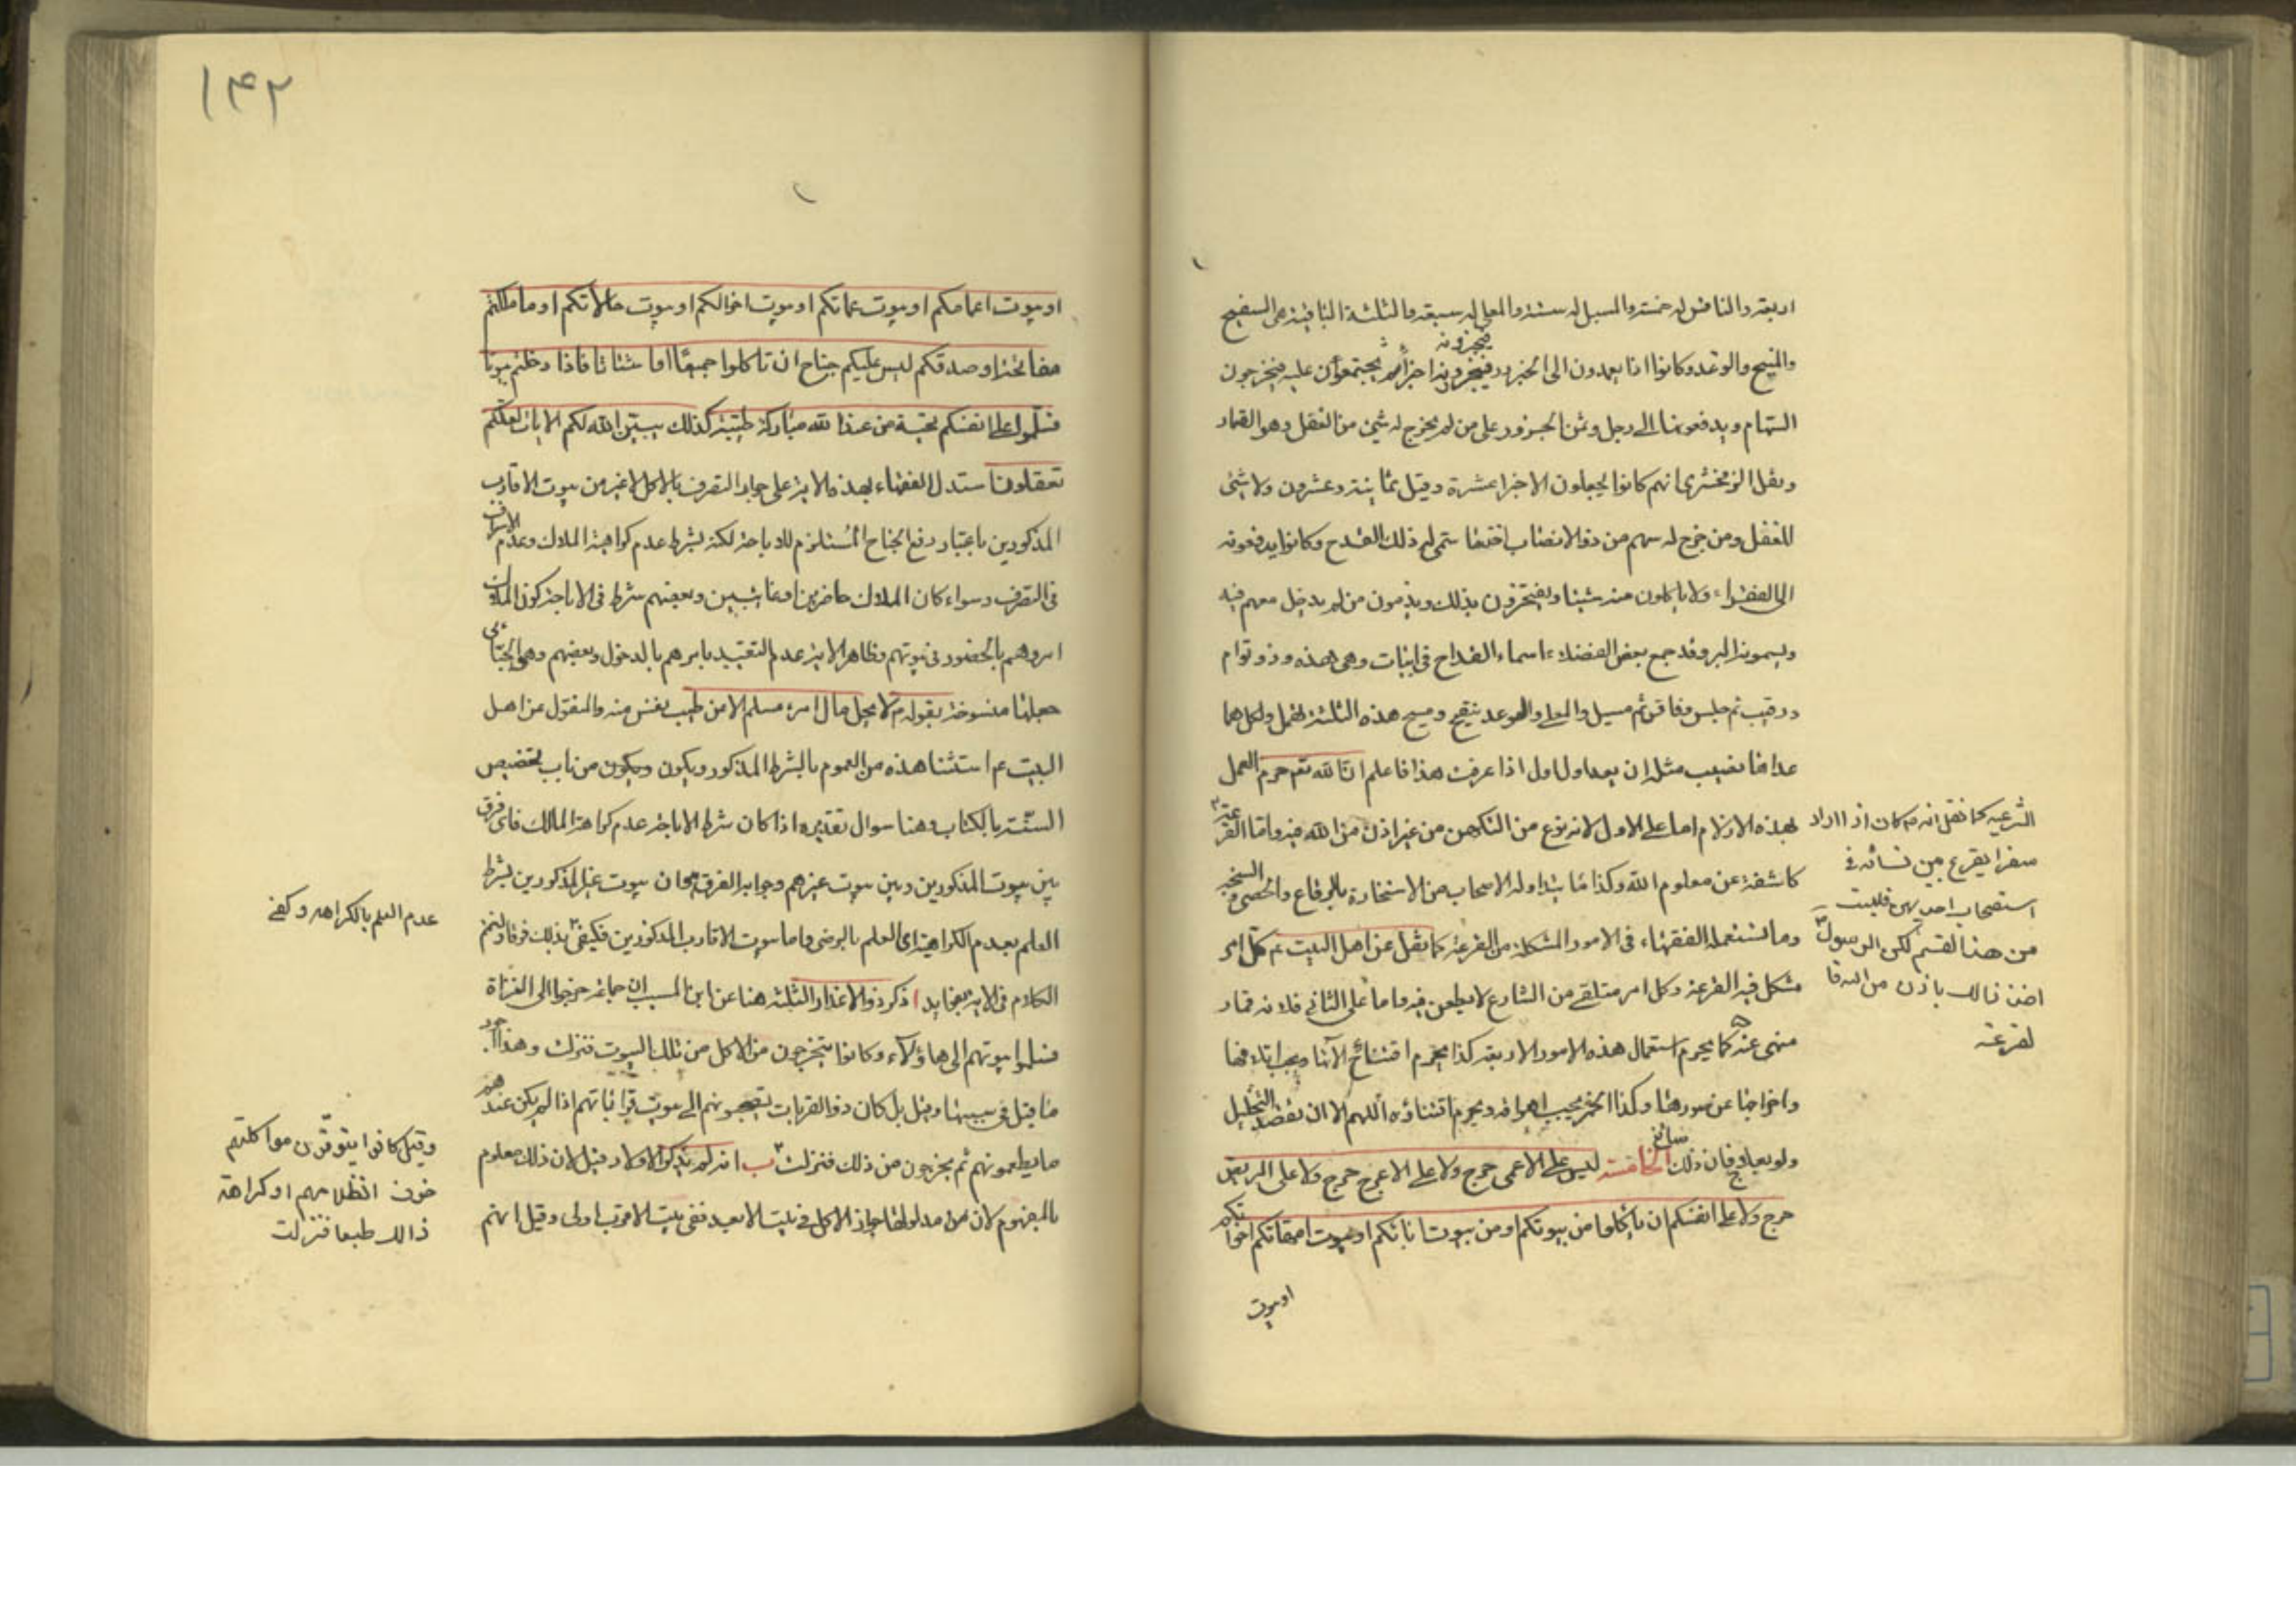 اربعة والنافس له خمسة والمسبل له ستة والمعلى له سبعة والثلثة الباقية هى السفيح
والمنيح والوغد وكانوا اذا يعمدون الى الجزور فيجزونه اجزأ ثم يجتمعون عليه فيخرجون
السهام ويدفعونها الى رجل وثمن الجزور على من لم يخرج له شئ من الغفل وهو القمار
ونقل الزمخشرى انهم كانوا يجعلون الاجزا عشرة وقيل ثمانية وعشرون ولا شئ
للغفل ومن خرج له سهم من ذوا الانصباب اخذ ما سمى له ذلك القدح وكانوا يدفعونه
الى الفقراء ولا ياكلون منه شيئا ويفتخرون بذلك ويذمون من لم يدخل معهم فيه
ويسمونه البرم وقد جمع بعض الفضلاء اسماء القداح فى ابيات وهى هذه وذو توام
ورقيب ثم حلس ونافس ثم مسبل والمعلى والوغد سفيح ومنيح هذه الثلثة تهمل ولكل مما
عداها نصيب مثله ان يعد اول اول اذا عرفت هذا فاعلم ان الله تع حرم العمل
بهذه الازلام اما على الاول لانه نوع من التكهن من غير اذن من الله فيه واما القرعة
الشرعية كما نقل انه ص كان اذا اراد
سفرا يقرع بين نسائه فى
استصحاب احديهن فليست
من هذا القسم لكن الرسول
اخذ ذالك باذن من الله فا
لقرعة
كاشفة عن معلوم الله وكذا ما يتداوله الاصحاب من الاستخارة بالرقاع والحصى والسبحة
وما تستعمله الفقهاء فى الامور المشكلة من القرعة كما نقل عن اهل البيت ع كل امر
مشكل فيه القرعة وكل امر متلقى من الشارع لا يطعن فيه واما على الثانى فلانه قمار
منهى عنه كما يحرم استعمال هذه الامور الاربعة كذا يحرم اقتنائها ويجب اتلافها
واخراجها عن صورها وكذا الخمر يجب اهراقه ويحرم اقتناؤه اللهم الا ان يقصد التخليل
ولو بعلاج فان ذلك سائغ الخامسة ليس على الاعمى حرج ولا على الاعرج حرج ولا على المريض
حرج ولا على انفسكم ان تاكلوا من بيوتكم او من بيوت ابائكم او بيوت امهاتكم اخوا تكم
او بيوت
١٤٢
او بيوت اعمامكم او بيوت عماتكم او بيوت اخوالكم او بيوت خالاتكم او ما ملكتم
مفاتحه او صديقكم ليس عليكم جناح ان تاكلوا جميعا او اشتاتا فاذا دخلتم بيوتا
فسلموا على انفسكم تحية من عند الله مباركة طيبة كذلك يبين الله لكم الايات لعلكم
تعقلون استدل الفقهاء بهذه الاية على جواز التصرف بالاكل لا غير من بيوت الاقارب
المذكورين باعتبار رفع الجناح المستلزم للاباحة لكنه بشرط عدم كراهية الملاك وعدم الاسراف
فى التصرف وسواء كان الملاك حاضرين او غائبين وبعضهم شرط فى الاباحة كون الملاك
امروهم بالحضور فى بيوتهم وظاهر الاية عدم التقييد بامرهم بالدخول وبعضهم وهو الجبائى
جعلها منسوخة بقوله ص لا يحل مال امرء مسلم الا من طيب نفس منه والمنقول عن اهل
البيت ع استثنا هذه من العموم بالشرط المذكور ويكون ويكون من باب تخصيص
السنة بالكتاب وهنا سوال تقديره اذا كان شرط الاباحة عدم كراهة المالك فاى فرق
بين بيوت المذكورين وبين بيوت غيرهم وجوابه الفرق هو ان بيوت غير المذكورين يشرط
العلم بعدم الكراهية اى العلم بالرضى واما بيوت الاقارب المذكورين فيكفى بذلك فرقا ولنختم
عدم العلم بالكراهه وكفى
الكلام فى الاية بفوايد ا ذكر ذوا الاعذار الثلثة هنا عن ابن المسيب ان جماعة خرجوا الى الغزاة
فسلموا بيوتهم الى هاؤلآء وكانوا يتحرجون من الاكل من تلك البيوت فنزلت وهذا اجود
ما قيل فى سببها وقيل بل كان ذوا القربات يصحبونهم الى بيوت قراباتهم اذا لم يكن عندهم
ما يطعمونهم ثم يحرجون من ذلك فنزلت ب انه لم يذكر الاولاد قيل لان ذلك معلوم
وقيل كانوا يتوقون مواكلتهم
خوف انظلامهم او كراهة
ذالك طبعا فنزلت
بالمفهوم لان من مدلولها جواز الاكل فى بيت الابعد ففى بيت الاقرب اولى وقيل انهم